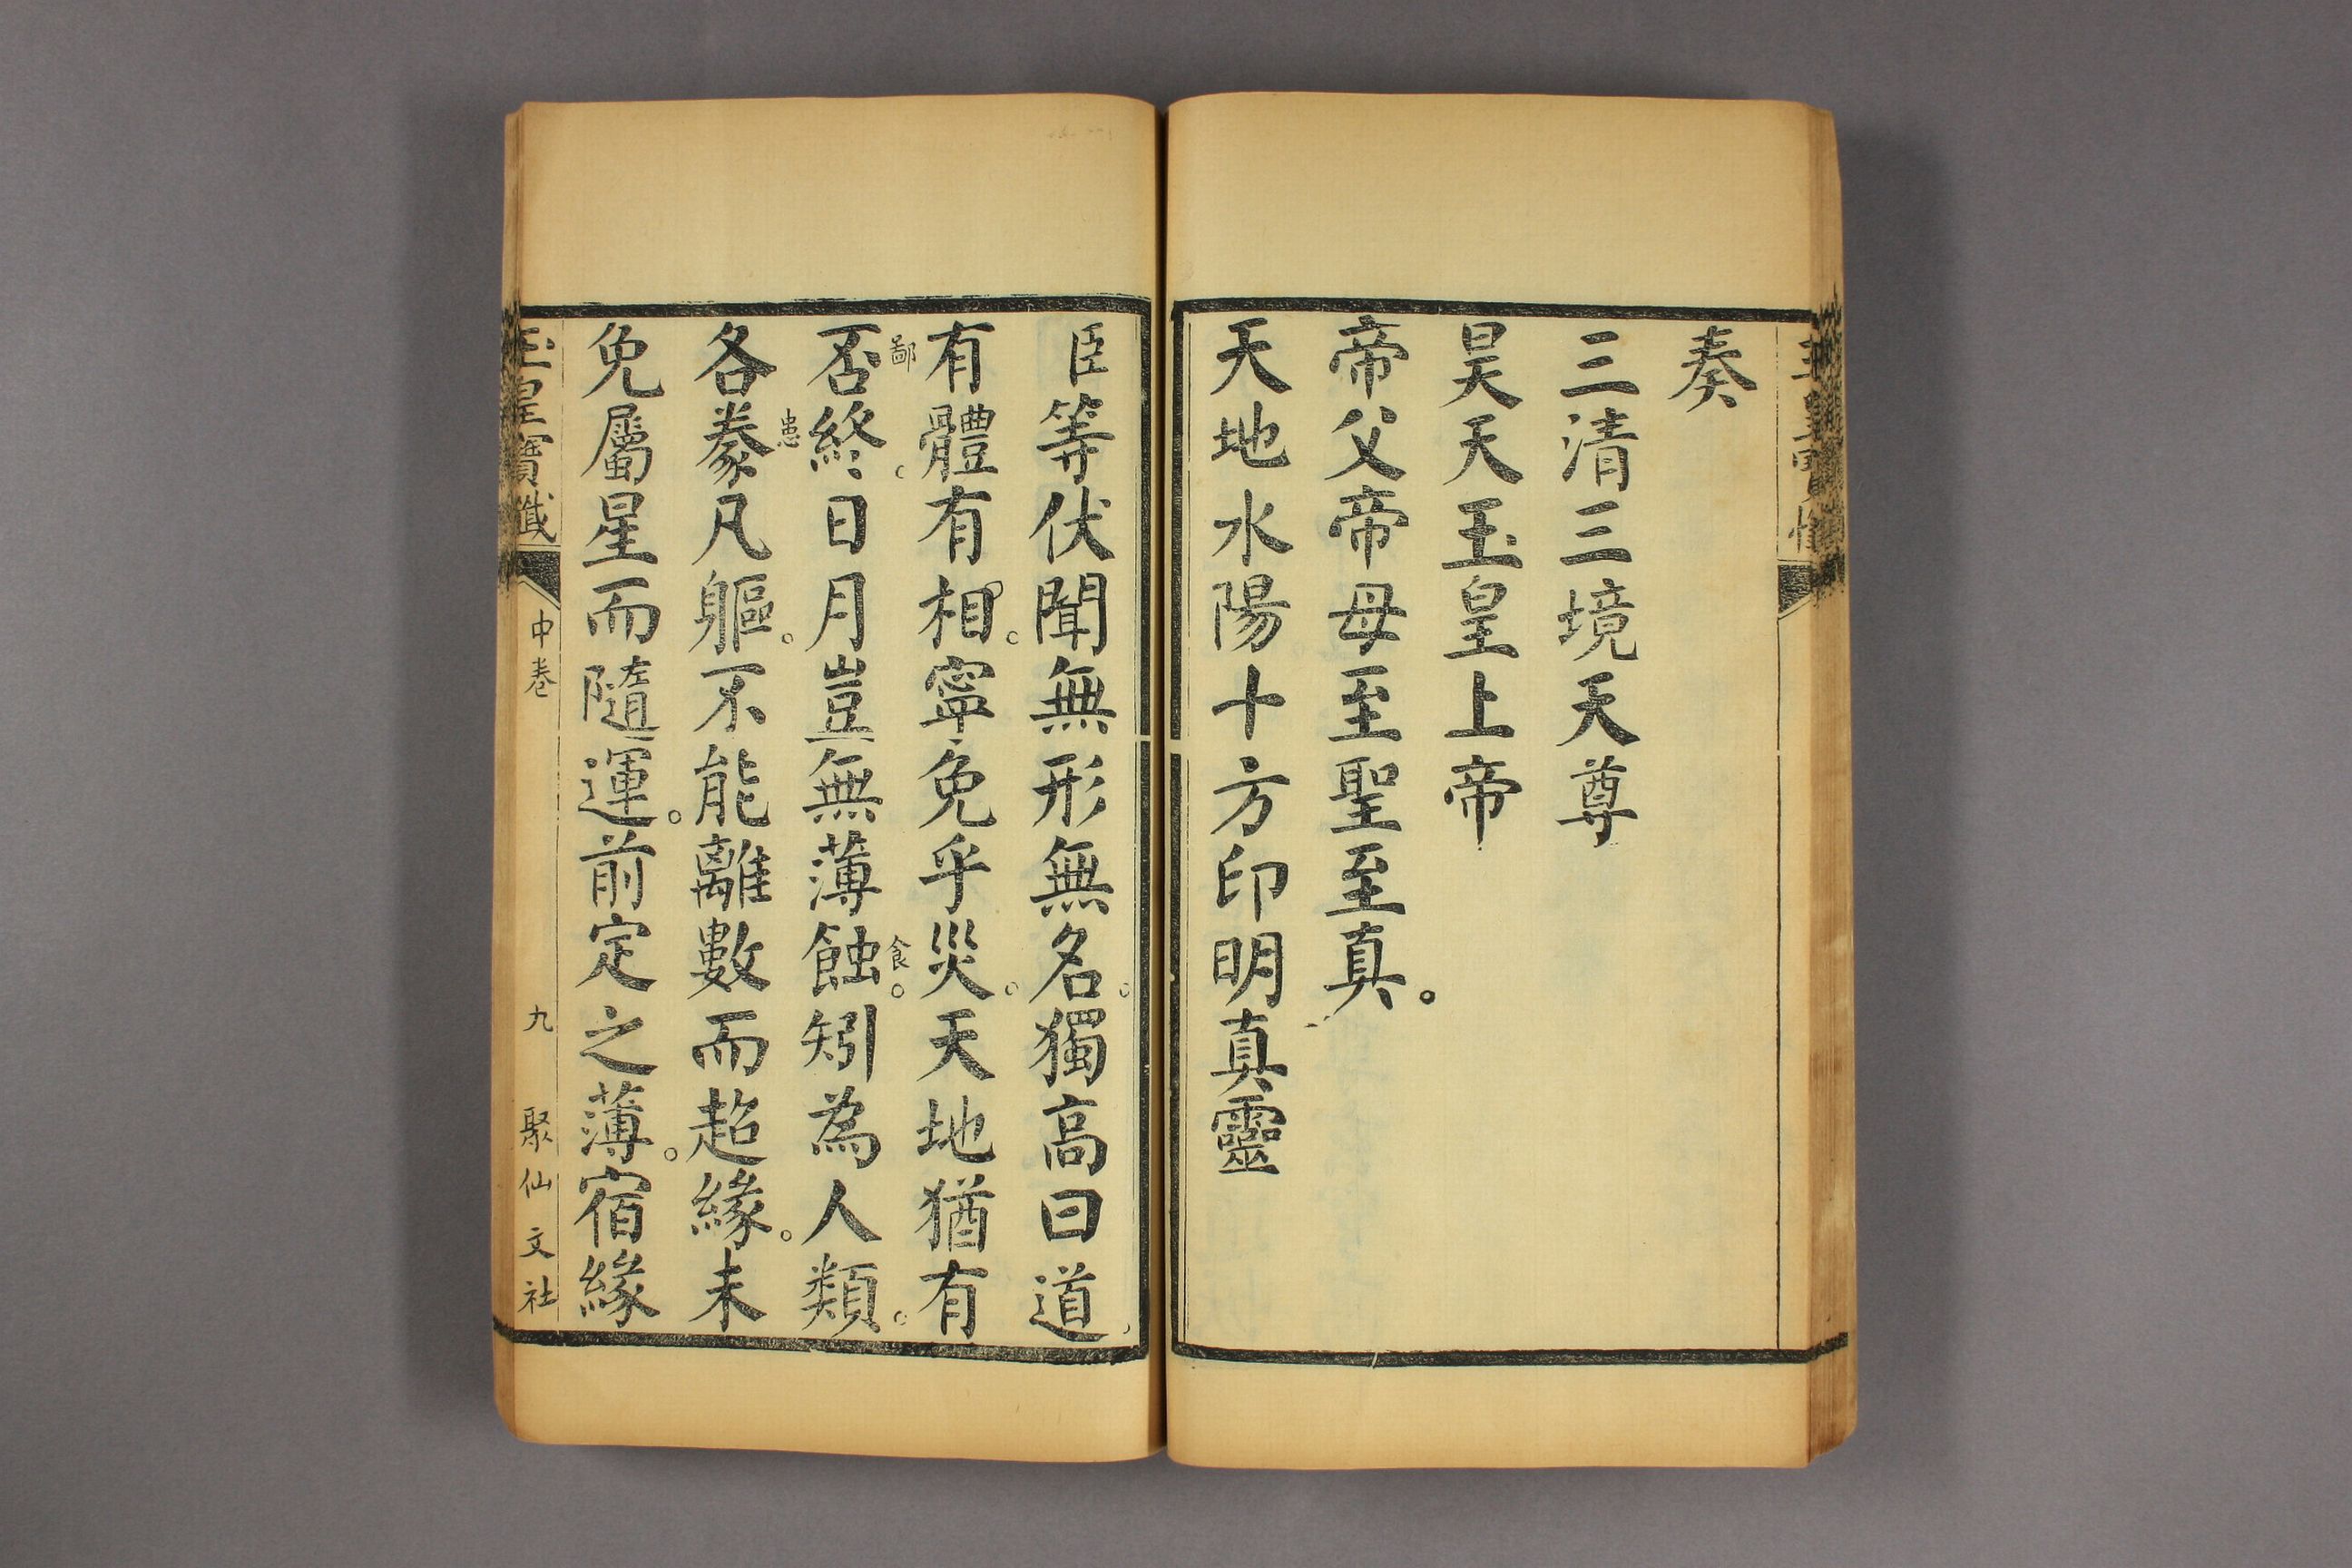 奏
三清三境天尊
昊天玉皇上帝
帝父帝母至聖至真。
天地水陽十方印明真靈
臣等伏聞無形無名。獨高曰道。
有體有相。寧免乎災。天地猶有
否終。日月豈無薄蝕。矧為人類。
鄙
食
各豢凡軀。不能離數而超緣。未
患
免屬星而隨運。前定之薄。宿緣
玉皇寶懺
中卷
九
聚仙文社